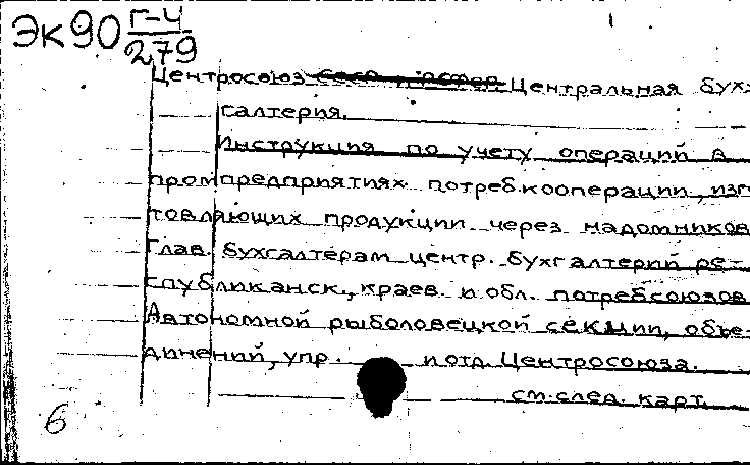 Эк90 Г-4
279
Центросоюз Центральная бух-
галтерия.
Инструкция по учету операций в
промпредприятиях потреб.кооперации, изго
товляющих продукцию через надомников
Глав. бухгалтерам центр. бухгалтерий ре-
спубликанск., краев. и обл. потребсоюзов
Автономной рыболовецкой секции, объе-
динений, упр. и отд. Центросоюза.
см. след. карт.
6